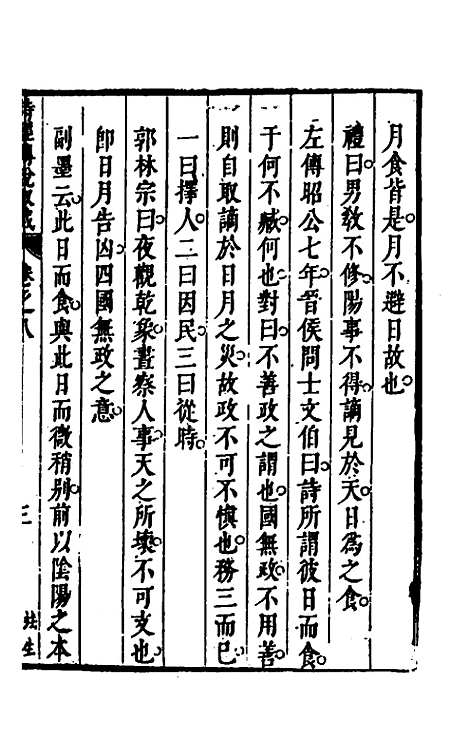 月食皆是月不避日故也
禮曰男敎不修陽事不得謫見於天日爲之食
左傳昭公七年晉侯問士文伯曰詩所謂彼日而食
于何不臧何也對曰不善政之謂也國無政不用善
則自取謫於日月之災故政不可不愼也務三而已
一曰擇人二曰因民三曰從時
郭林宗曰夜觀乾象晝察人事天之所壞不可支也
卽日月告凶四國無政之意
副墨云此日而食與此日而微稍别前以陰陽之本
卷之八
三